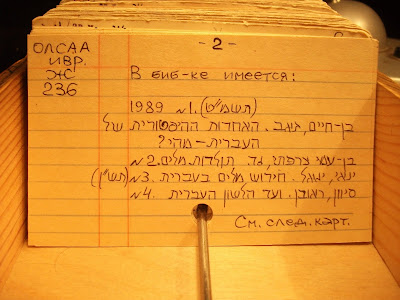 - 2 -
ОЛСАА
ИВР.
Ж
236
В биб-ке имеется:
1989 м.1 (תשמ"ט)
בן-חיים, זאב. האחדות ההיסטורית של
העברית - מהי?
בן-עמי צרפתי, גד. תולדות מלים. м.2
ינאי, יגאל. חידוש מלים בעברית. м.3 (תש"ן)
סיוון, ראובן. ועד הלשון העברית м.4
См. след. карт.